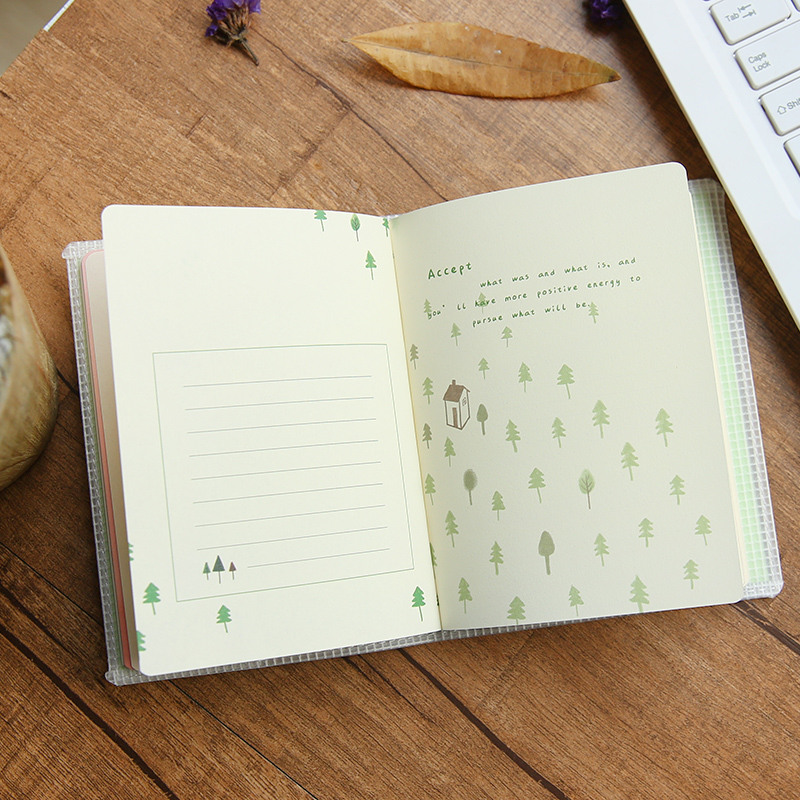 Accept
what was and what is, and
you' ll have more positive energy to
pursue what will be.
Tab
Caps
Lock
Shi